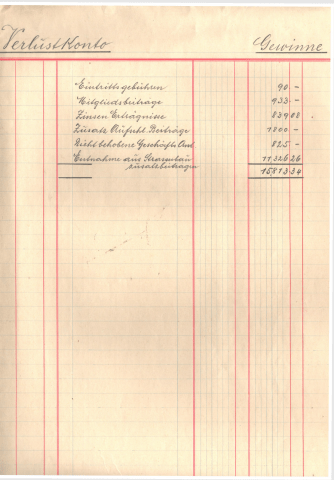 Verlust Konto Gewinne
Eintrittsgebühren 90 –
Mitgliedsbeiträge 933 –
Zinsen Erträgnisse 839 08
Zusatz Beiträge 1800 –
Nicht behobene Geschäfts 825 –
Entnahme aus Strassenbau 11326 26
zusatzbeiträgen
15813 34